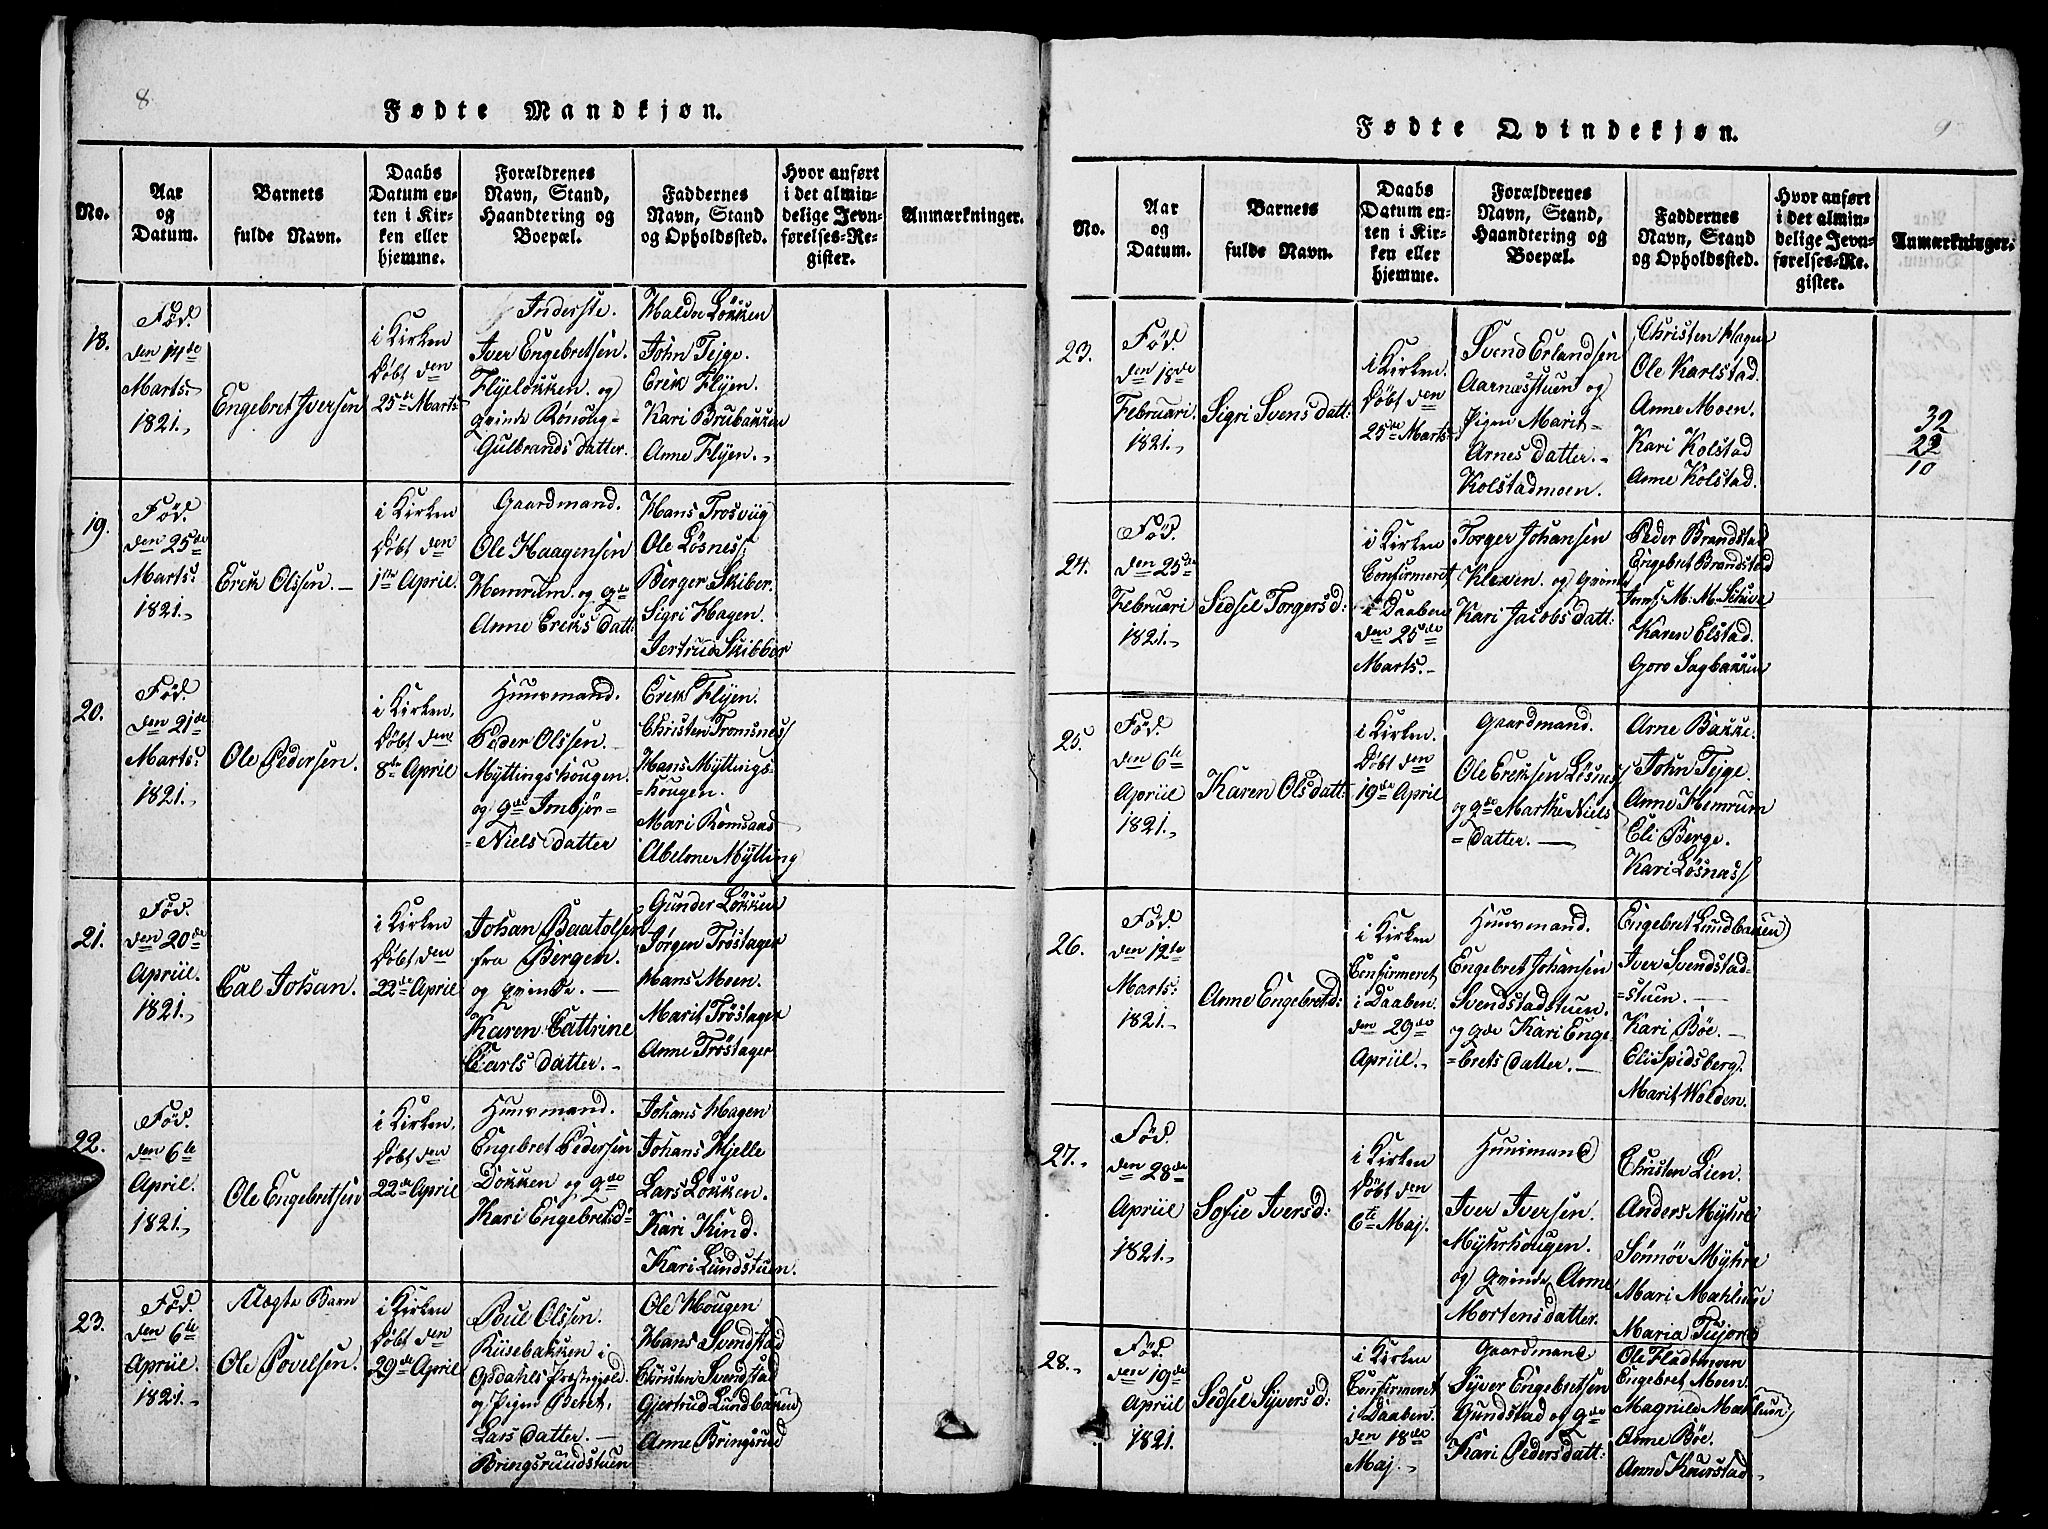 8.
Fødte Mandkjøn.
No.
Aar
og
Datum.
Barnets
fulde Navn.
Daabs
Datum en-
ten i Kir-
ken eller
hjemme.
Forældrenes
Navn, Stand,
Haandtering og
Boepæl.
Faddernes
Navn, Stand
og Opholdssted.
Hvor anført
i det almin-
delige Jevn-
førelses-Re-
gister.
Anmærkninger.
18.
Fød.
den 14de
Marts.
1821.
Engebret Iversen
i Kirken
Døbt den
25de Marts
Inderste.
Iver Engebretsen.
Flyeløkken. og
qvinde Rønoug
Gulbrands datter.
Haldor Løkken
John Tejge.
Erek Flyen.
Kari Brubakken
Anne Flyen.
19.
Fød.
den 25de
Marts.
1821.
Erek Olssen.
i Kirken
Døbt den
1ste April.
Gaardmand.
Ole Haagensen
Hemrum og qde
Anne Ereks datt:
Hans Trosviig
Ole Løsness
Berger Skiber.
Sigri Hagen.
Jertrud Skibber
20.
Fød.
den 21de
Marts.
1821.
Ole Pedersen.
i Kirken.
Døbt den
8de April
Huusmand.
Peder Olssen.
Myttingshougen.
og qde Imbjør
=Niels datter
Erek Flyen.
Christen Tromsness
Hans Myttings-
=hougen.
Mari Romsaas
Abelone Mytting
21.
Fød.
den 20de
Apriil.
1821.
Cal Johan.
i Kirken
Døbt den
22de April
Johan Baatolsen
fra Bergen.
og qvinde.
Karen Cattrine
Carls datter.
Gunder Løkken
Jørgen Trøstager
Hans Moen.
Marit Trøstager
Anne Trøstager
22.
Fød.
den 6te
April.
1821.
Ole Engebretsen
i Kirken.
Døbt den
22de April
Huusmand.
Engebret Pedersen
Døkken og qde
Hari Engebretsd=
Johans Hagen
Johans Hjelle
Lars Løkken.
Kari Kind.
Kari Lundstuen.
23.
Fød.
den 6te
Apriil
1821.
Uægte Barn
Ole Povelsen.
i Kirken
Døbt den
29de April
Poul Olssen.
Kiisebakken i
Opdahls Præstegjeld
og Pigen Beret.
Lars datter.
Bringsruudstuen
Ole Hougen
Hans Svendstad
Christen Svendstad
Gjertrud Lundbaken
Anne Bringsrud
9
Fødte Qvindekjøn.
No.
Aar
og
Datum.
Barnets
fulde Navn.
Daabs
Datum en-
ten i Kir-
ken eller
hjemme.
Forældrenes
Navn, Stand,
Haandtering og
Boepæl.
Faddernes
Navn, Stand
og Opholdssted.
Hvor anført
i det almin-
delige Jevn-
førelses-Re-
gister.
Anmærkninger.
23.
Fød.
den 18de
Februari.
1821.
Sigri Svens datt:
i Kirken.
Døbt den
25de Marts
Svend Erlandsen
Aarnæsstuen og
Pigen Marit
Arnes datter.
Kolstadmoen.
Christen Hagen
Ole Karlstad.
Anne Moen.
Kari Kolstad
Anne Kolstad.
32
22
10
24.
Fød.
den 25de
Februari
1821.
Sedsel Torgersd:
i Kirken
Confirmeret
i Daaben
den 25de
Marts.
Torger Johansen
Kleven. og qvinde
Kari Jacobs datt:
Peder Brandstad
Engebret Brandstad
Jomfr M: M: Schive
Karen Elstad.
Goro Sagbakken
25.
Fød.
den 6te
Apriil
1821.
Karen Olsdatt:
i Kirken.
Døbt den
19de April
Gaardmand.
Ole Ereksen Løsness
og qde Marthe Niels
=datter.
Arne Bakke.
John Tejge.
Anne Hemrum
Eli Berge.
Kari Løsnæss
26.
Fød.
den 12te
Marts:
1821.
Anne Engebretd:
i Kirken
Confirmeret
i Daaben.
den 29de
Apriil.
Huusmand.
Engebret Johansen
Svendstadstuen.
og qde Kari Enge-
=brets datter.
Engebret Lundbaken
Iver Svendstad-
=stuen.
Kari Bøe.
Eli Spidsberg.
Marit Wolden.
27.
Fød.
den 28de
Apriil
1821.
Sofie Iversd:
i Kirken
Døbt den
6te Maj.
Huusmand
Iver Iversen.
Myhrhougen.
og qvinde Anne
Mortensdatter.
Christen Lien.
Anders Myhre
Sønnøv Myhre
Mari Mæhlum
28.
Fød.
den 19de
Apriil
1821.
Sedsel Syversd:
i Kirken
Confirmeret
i Daaben.
den 18de
Maj.
Gaardmand
Syver Engebretsen
Gundstad og qde
Kari Peders datt:
Engebret Moen.
Anne Bøe.